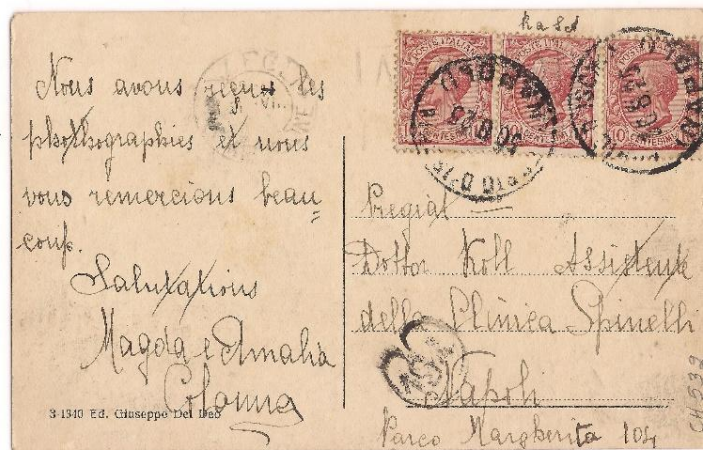 Nous avons reçus les
photographies et nous
vous remercions beau-
coup.
Salutations
Magda e Amalia
Colonna
3-1340 Ed. Giuseppe Del Deo
POSTE ITALIANE
10 CENTESIMI 10
Pregiat
Dottor Koll Assistente
della Clinica Spinelli
Napoli
Parco Margherita 104
CH 539